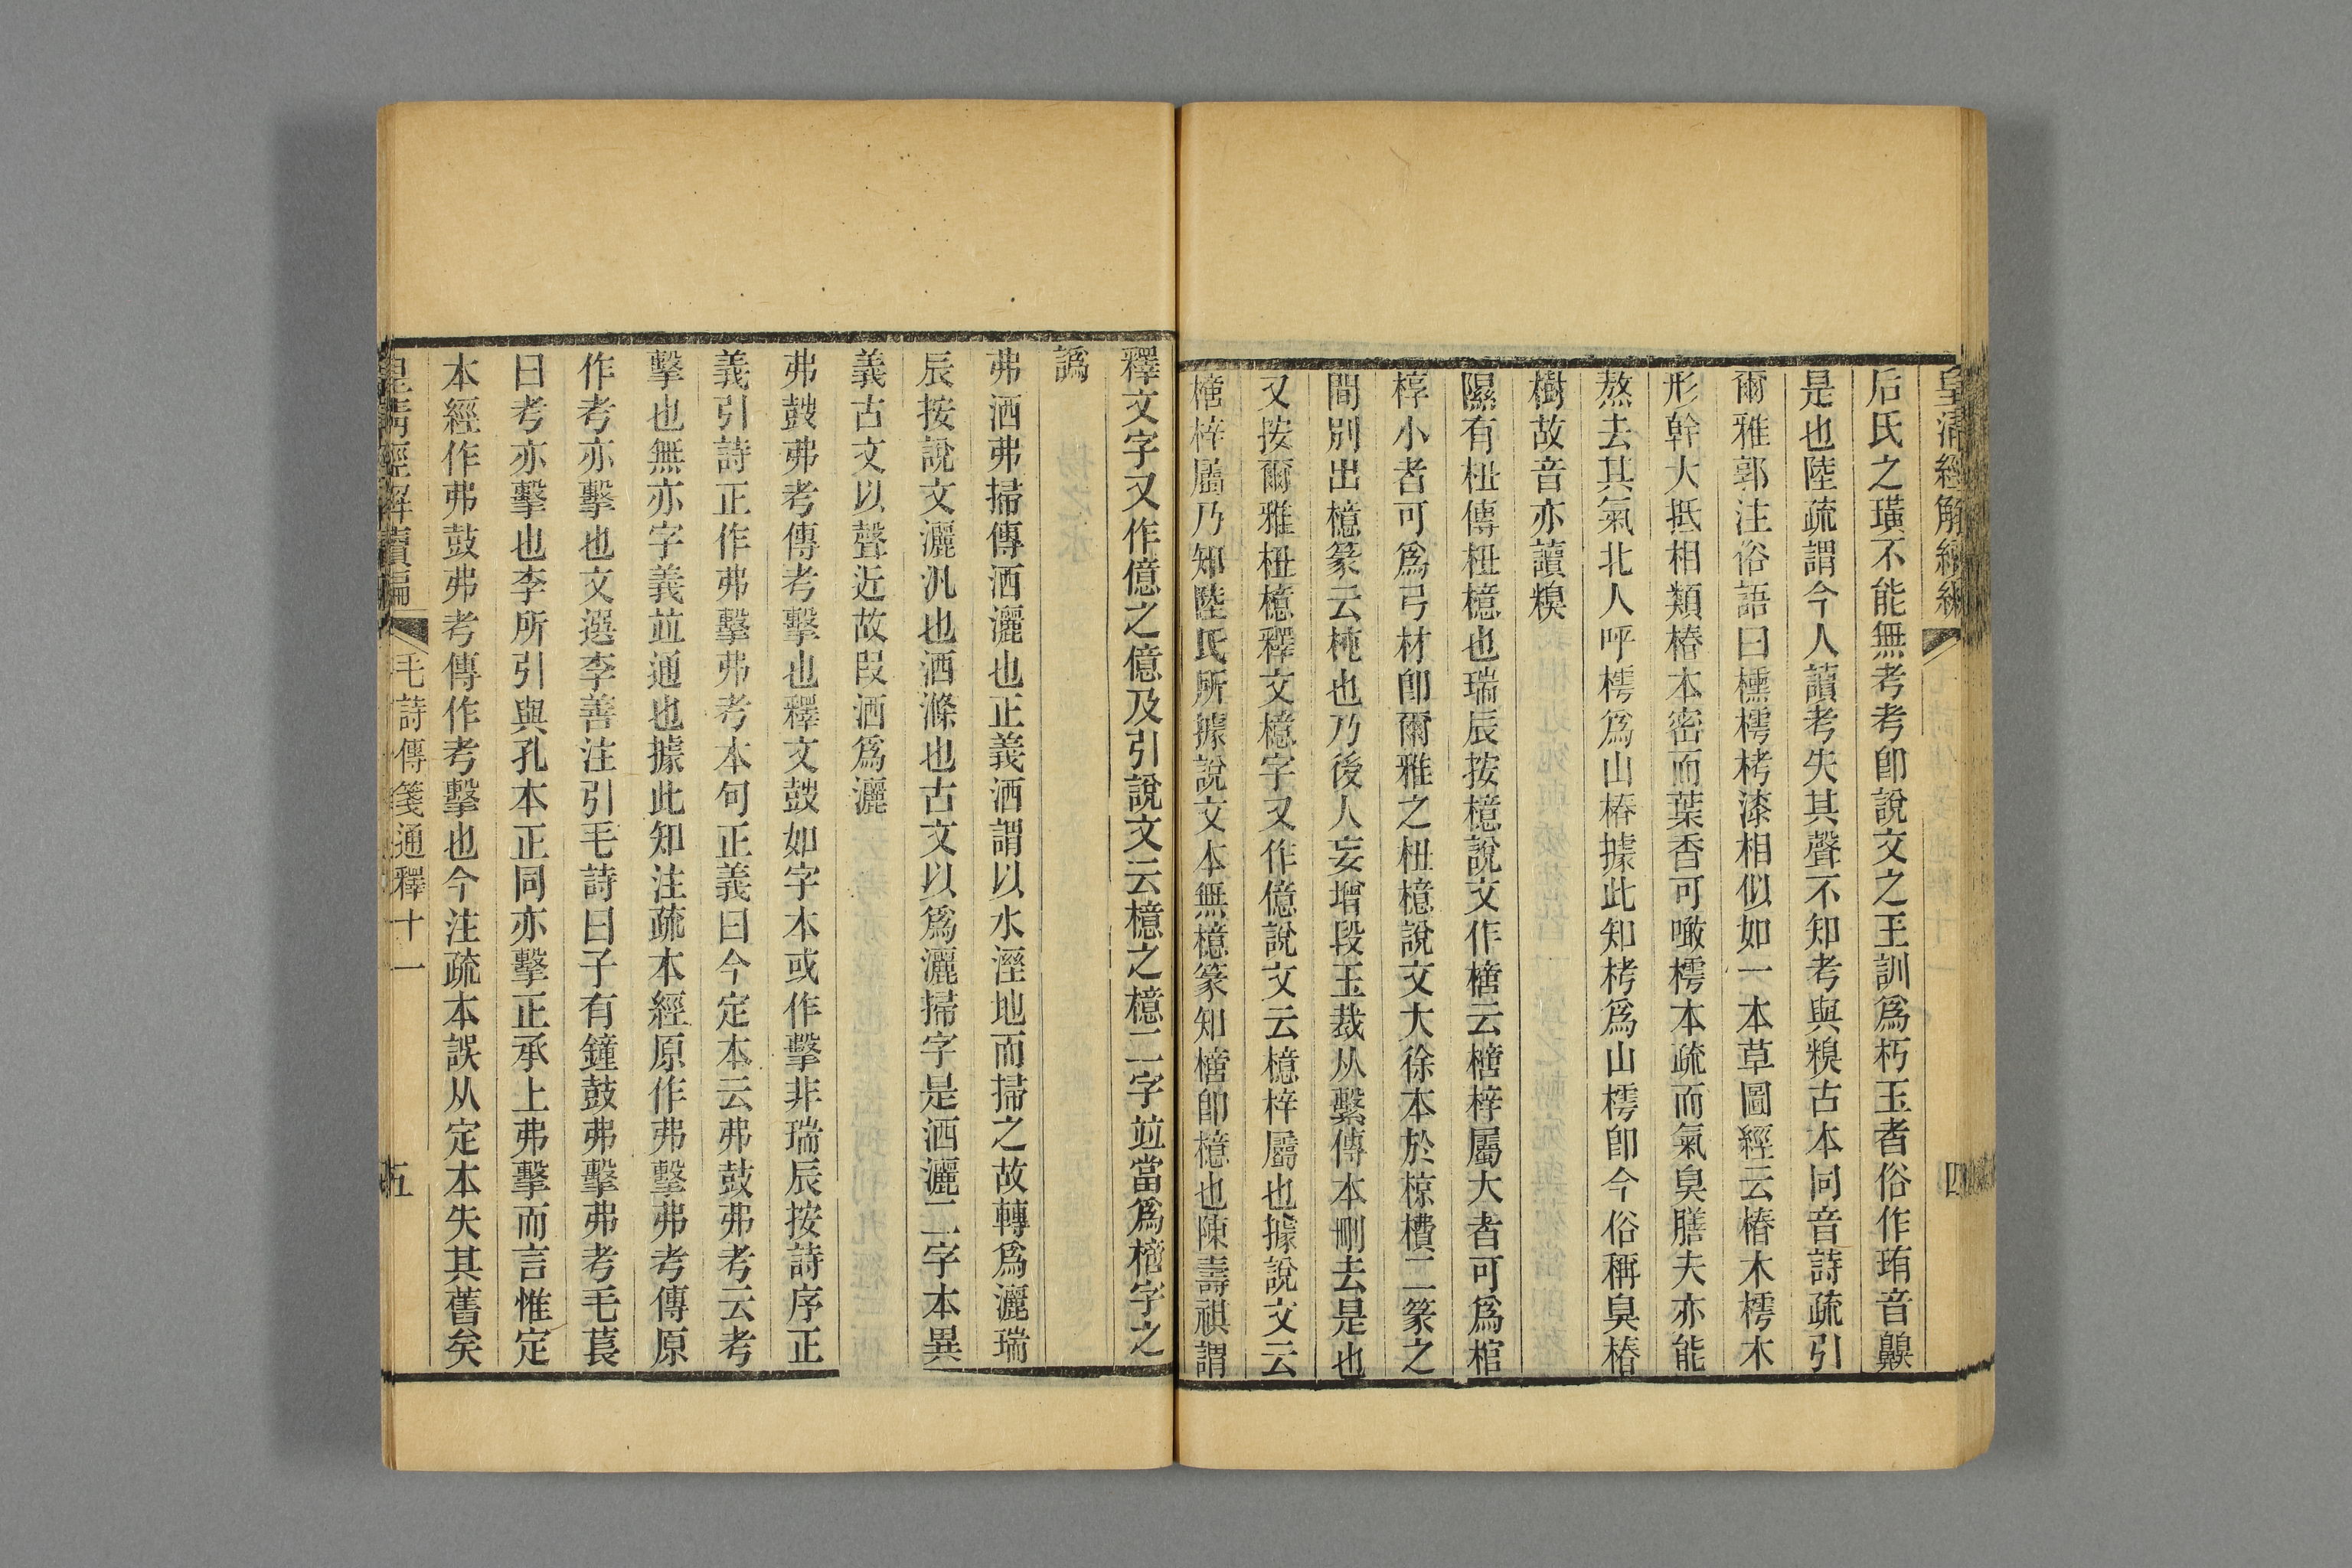 皇淸經解續編
四
后氏之璜不能無考考卽說文之玉訓爲朽玉者俗作珛音齅
是也陸疏謂今人讀考失其聲不知考與糗古本同音詩疏引
爾雅郭注俗語曰櫄樗栲漆相似如一本草圖經云椿木樗木
形幹大抵相類椿本密而葉香可噉樗本疏而氣臭膳夫亦能
熬去其氣北人呼樗爲山椿據此知栲爲山樗卽今俗稱臭椿
樹故音亦讀糗
隰有杻傳杻檍也瑞辰按檍說文作楮云楮梓屬大者可爲棺
椁小者可爲弓材卽爾雅之杻檍說文大徐本於椋櫝二篆之
間別出檍篆云杶也乃後人妄增段玉裁从繫傳本刪去是也
又按爾雅杻檍釋文檍字又作億說文云檍梓屬也據說文云
楮梓屬乃知陸氏所據說文本無檍篆知楮卽檍也陳壽祺謂
釋文字又作億之億及引說文云檍之檍二字竝當爲楮字之
譌
弗洒弗掃傳洒灑也正義洒謂以水溼地而掃之故轉爲灑瑞
辰按說文灑汎也洒滌也古文以爲灑掃字是洒灑二字本異
義古文以聲近故叚洒爲灑
弗鼓弗考傳考擊也釋文鼓如字本或作擊非瑞辰按詩序正
義引詩正作弗擊弗考本句正義曰今定本云弗鼓弗考云考
擊也無亦字義竝通也據此知注疏本經原作弗擊弗考傳原
作考亦擊也文選李善注引毛詩曰子有鐘鼓弗擊弗考毛萇
曰考亦擊也李所引與孔本正同亦擊正承上弗擊而言惟定
本經作弗鼓弗考傳作考擊也今注疏本誤从定本失其舊矣
皇淸經解續編
毛詩傳箋通釋十一
五